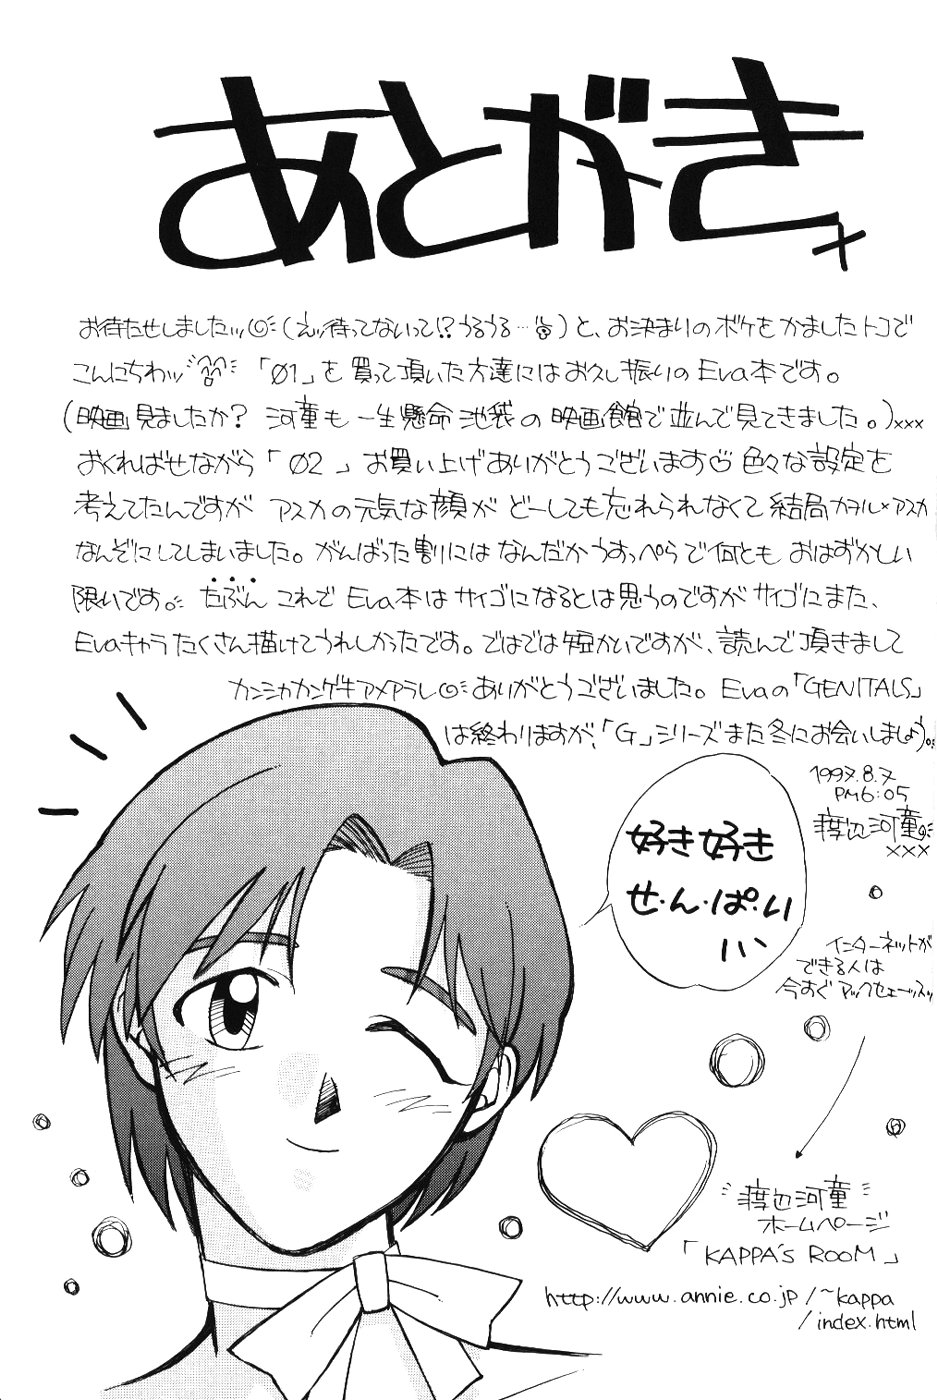 あとがき
お待たせしましたッ(えッ待ってないって!?うるうる…)と、お決まりのボケをかましたトコで
こんにちわッ 「01」を買って頂いた方達にはお久し振りのEva本です。
(映画見ましたか? 河童も一生懸命池袋の映画館で並んで見てきました。)xxx
おくればせながら「02」お買い上げありがとうございます 色々な設定を
考えてたんですが アスカの元気な顔が どーしても忘れられなくて結局カヲル×アスカ
なんぞにしてしまいました。がんばった割にはなんだかうすっぺらで何とも おはずかしい
限りです。たぶん これで Eva本はサイゴになるとは思うのですがサイゴにまた、
Evaキャラたくさん描けてうれしかったです。ではでは短かいですが、読んで頂きまして
カンシャカンゲキアメアラレ ありがとうございました。Evaの「GENITALS」
は終わりますが、「G」シリーズまた冬にお会いしましょう。
1997.8.7
PM6:05
渡也河童
xxx
好き好き
せ・ん・ぱ・い
インターネットが
できる人は
今すぐ アックセェーッスッ
渡也河童
ホームページ
「KAPPA'S ROOM」
http://www.annie.co.jp/~kappa
/index.html